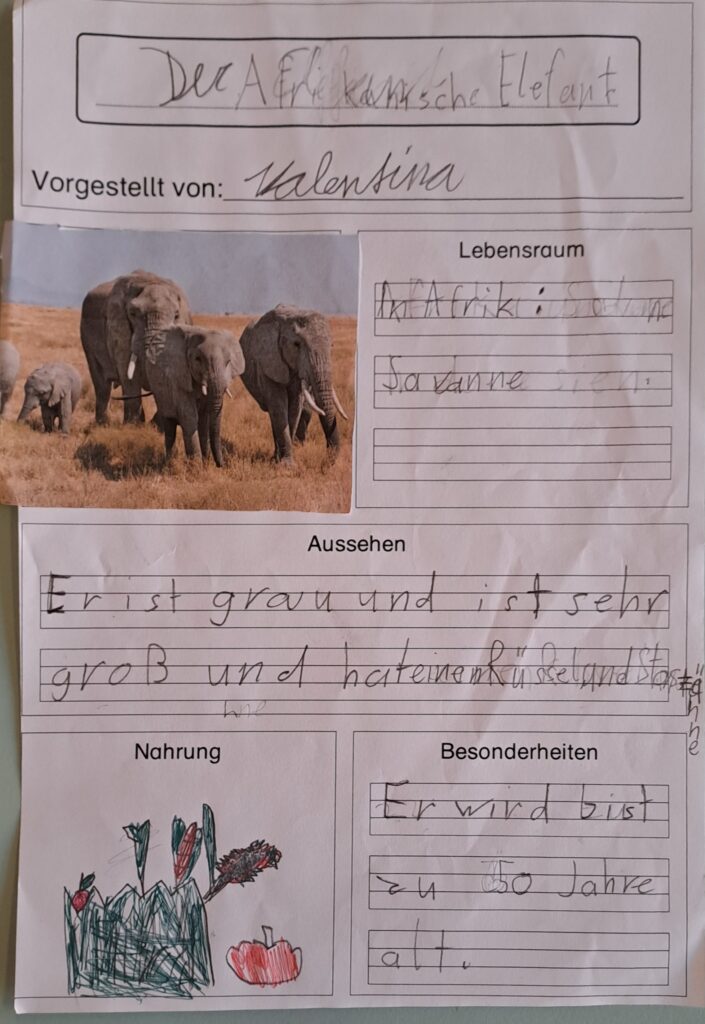 Der Afrikanische Elefant
Vorgestellt von: Valentina
Lebensraum
In Afrika:
Savanne
Aussehen
Er ist grau und ist sehr
groß und hat einen Rüssel und Stoszänne
hne
Nahrung
Besonderheiten
Er wird bist
zu 50 Jahre
alt.